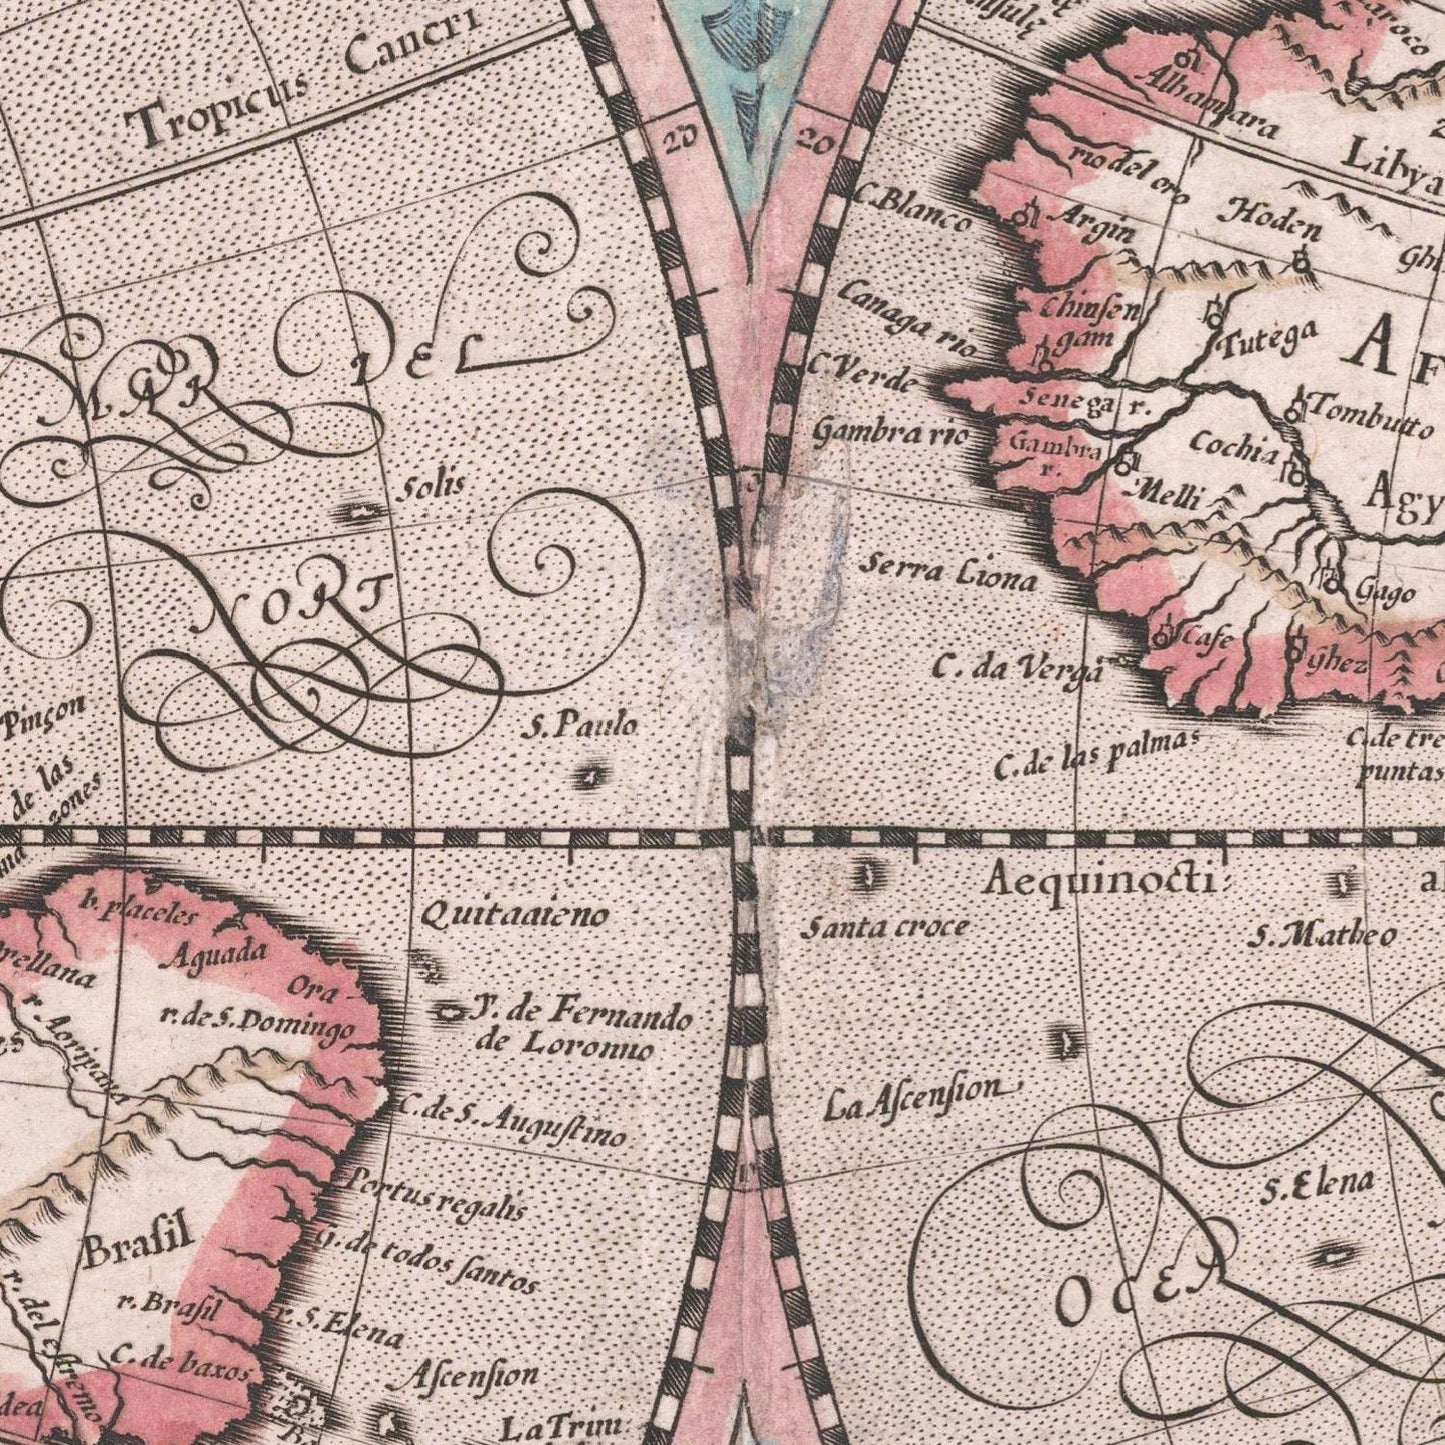 Tropicus Cancri
20
20
MAR DEL
Solis
NORT
Pinçon
de las
S. Paulo
C. Blanco
Canaga rio
C. Verde
Gambra rio
Serra Liona
C. da Verga
C. de las palmas
C. de tre
puntas
Albamara
Libya
rio del oro
Hoden
Argin
Ghi
Chinsen
gam
Tutega
AF
Senega r.
Tombutto
Gambra
r.
Cochia
Melli
Agy
Gago
Cafe
Ghez
Aequinocti
a
Santa croce
S. Matheo
La Ascension
S. Elena
OCEA
b. placeles
Quitaaieno
Aguada
Ora
r. de S. Domingo
y. de Fernando
de Loronno
C. de S. Augustino
Portus regalis
G. de todos santos
Brasil
r. Brasil
r. S. Elena
r. del estremo
C. de baxos
Ascension
La Trini